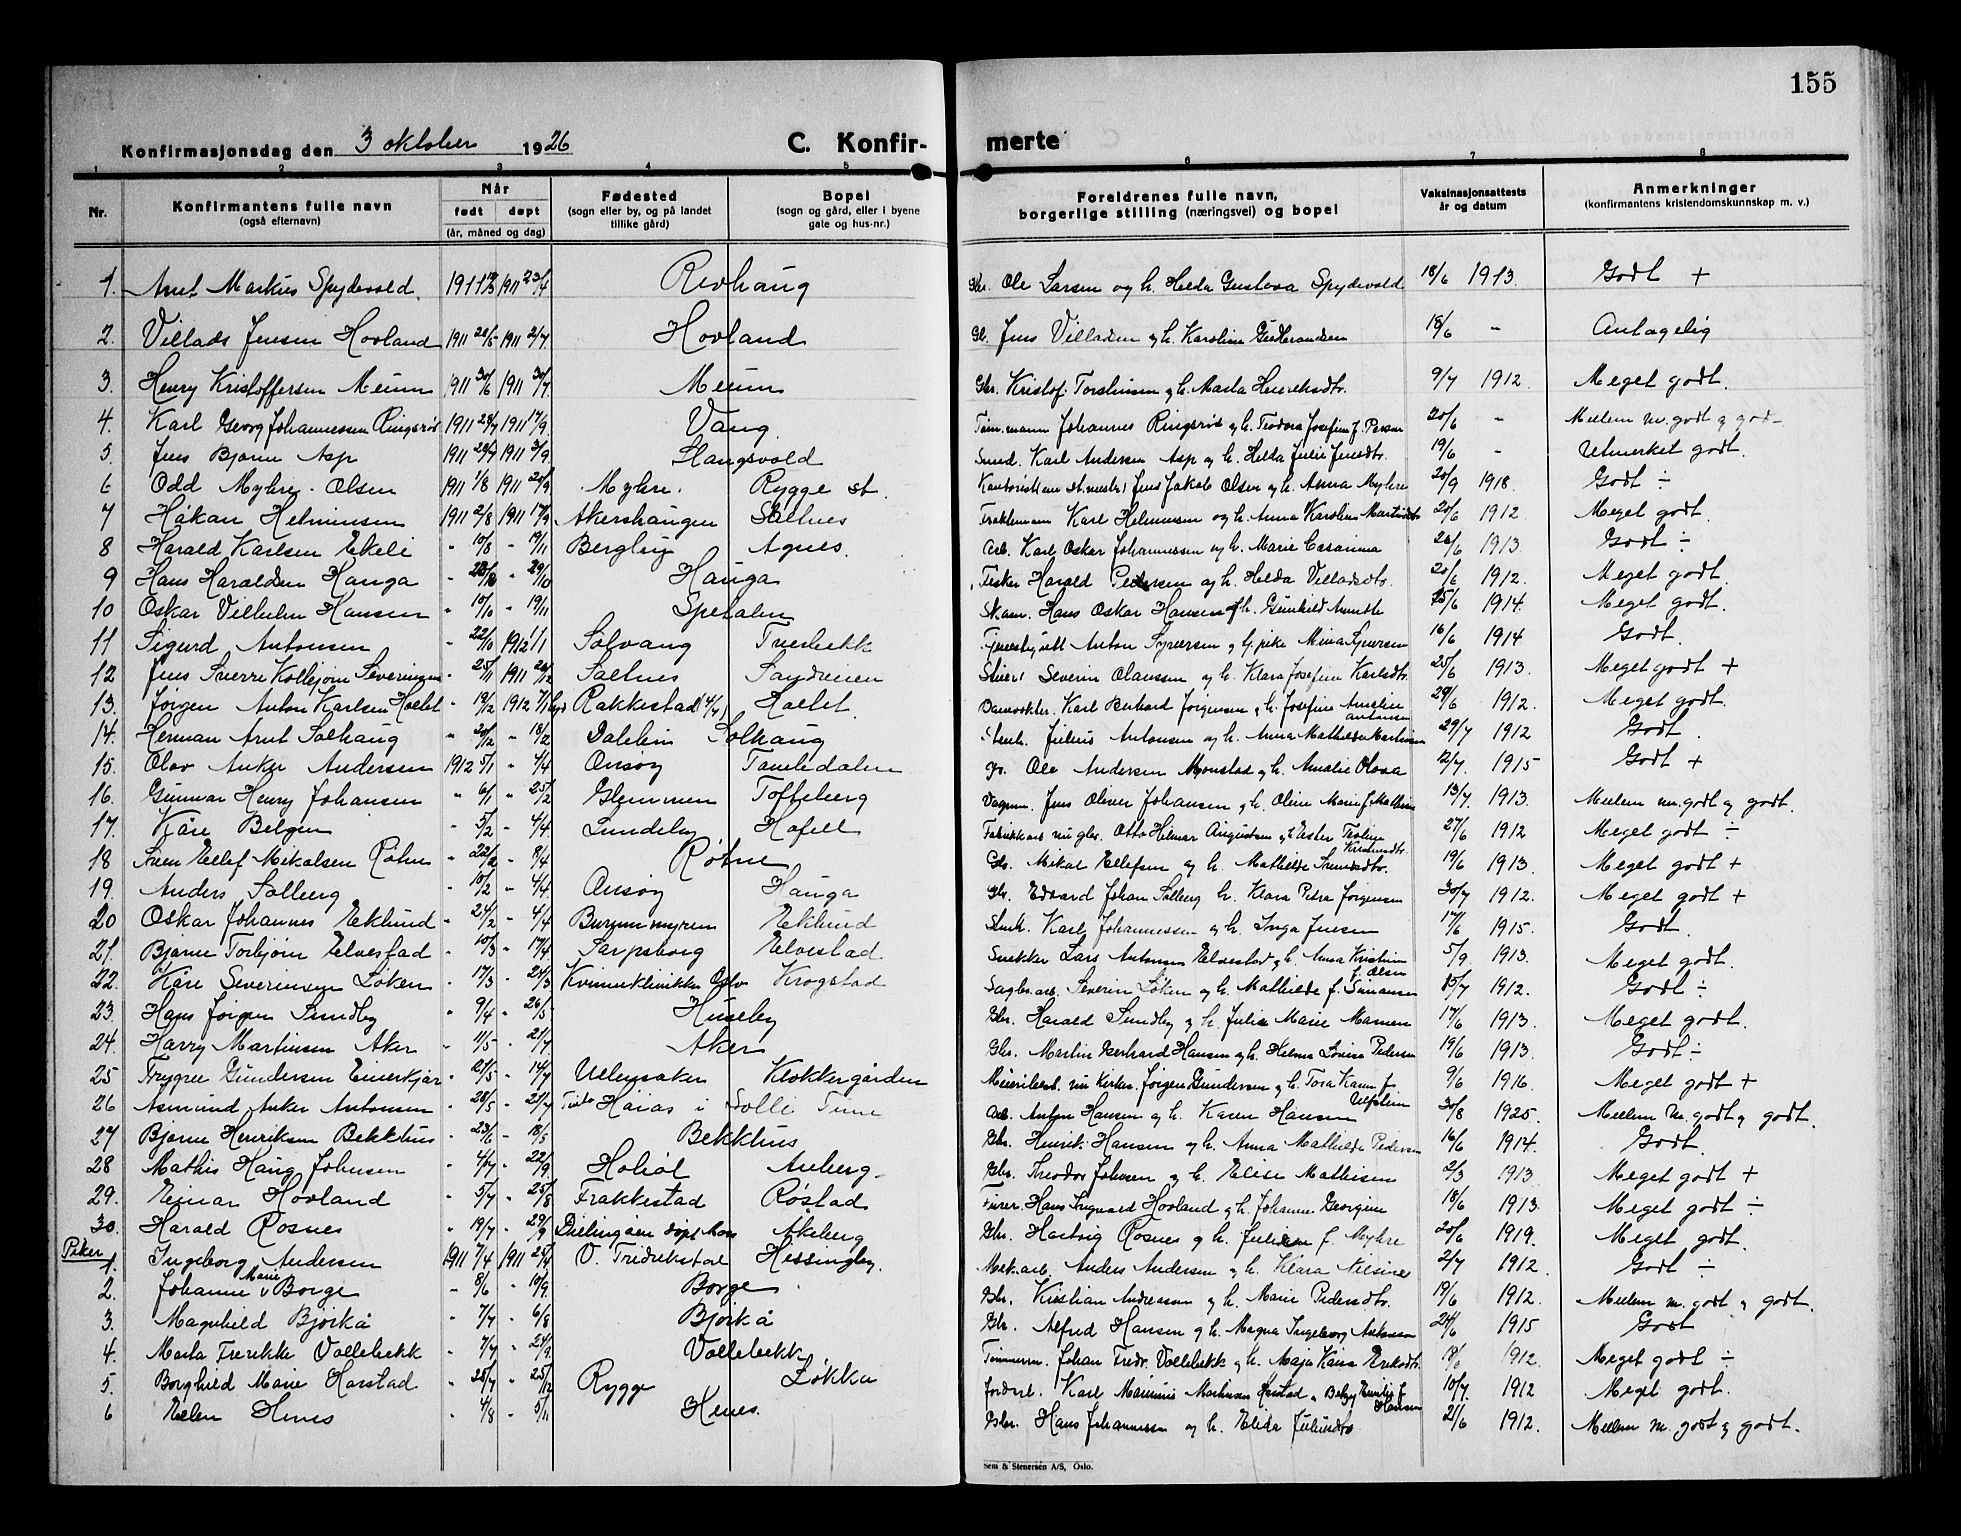 155
Konfirmasjonsdag den 3 oktober 1926
C. Konfir- merte
1 2 3 4 5 6 7 8
Nr.
Konfirmantens fulle navn (også efternavn)
Når født døpt (år, måned og dag)
Fødested (sogn eller by, og på landet tillike gård)
Bopel (sogn og gård, eller i byene gate og hus-nr.)
Foreldrenes fulle navn, borgerlige stilling (næringsvei) og bopel
Vaksinasjonsattests år og datum
Anmerkninger (konfirmantens kristendomskunnskap m. v.)
1. Arnt Markus Spydevold 1911 1911 23/4 Revhaug Gbr. Ole Larsen og h. Helda Gustava Spydevold 18/6 1913. Godt +
2. Villads Jensen Hovland 1911 28/5 1911 2/7 Hovland Gbr. Jens Villadsen og h. Karoline Gudbrandsen 18/6 - Antagelig
3. Henry Kristoffersen Meum 1911 30/6 1911 30/7 Meum Gbr. Kristof. Torstensen og h. Marta Henriksdtr. 9/7 1912. Meget godt.
4. Karl Georg Johannessen Ringsrød 1911 28/7 1911 17/9 Vang Tømmermann Johannes Ringsrød og h. Teodora Josefine f. 20/6 - Mellem m. godt og godt
5. Jens Bjarne Asp 1911 29/7 1911 3/9 Slangsvold Smed. Karl Andersen Asp og h. Helda Julie Jensdtr. 19/6 - Utmerket godt.
6 Odd Myhre-Olsen 1911 1/8 1911 20/9 Myhre. Rygge st. Jens Jakob Olsen og h. Anna Myhre 20/9 1918. Godt ÷
7 Håkan Helminsen 1911 2/8 1911 17/9 Akershaugen Saltnes Karl Helmersen og h. Anna Karoline Martinsdtr 20/6 1912. Meget godt.
8 Harald Karlsen Ekeli " 10/8 - 19/11 Berglry Agnes. Arb. Karl Oskar Johannessen og h. Marie Casarina 26/6 1913. Godt ÷
9 Hans Haraldsen Hauga - 29/10 Hauga Fisker Harald Pedersen og h. Helda Villadsdtr. 20/6 1912. Meget godt.
10 Oskar Vilhelm Hansen " 10/10 - 19/11 Spetalen Skom. Hans Oskar Hansen og h. Gunhild Annette 25/6 1914. Meget godt.
11 Sigurd Antonsen - 22/10 1912 1/1 Solvang Tverbekk Anton Syversen og pike Mina Syversen 16/6 1914 Godt.
12 Jens Sverre Kolbjørn Severinsen - 25/11 1911 26/12 Saltnes Sandveien Severin Olaussen og h. Klara Josefine Karlsdtr. 25/6 1913. Meget godt +
13. Jørgen Anton Karlsen Hoelet - 19/12 1912 7/1 Rakkestad (4/4) Hoelet. Karl Berhard Jørgensen og h. Josefine Amelie Antonsen 29/6 1912. Meget godt.
14. Herman Arnt Solhaug " 20/12 " 18/2 Dalebin Solhaug Julius Antonsen og h. Anna Mathilde Martinsen 29/7 1912 Godt.
15. Olav Anker Andersen 1912 5/1 - 4/4 Onsøy Tombdalen Ole Andersen Mjonstad og h. Amalie Olava 2/7. 1915 Godt +
16. Gunnar Henry Johansen " 6/1 " 25/2 Glemmen Tofteberg Vognm. Jens Oliver Johansen og h. Oline Marie f. Mathis 13/7. 1913. Mellem m. godt og godt.
17. Kåre Belgen - 5/2 - 4/4 Lundeby Hofell Fabrikkarb. nu gbr. Otto Helmer Augustsen og h. Ester Teoline Kristensdtr. 27/6 1912 Meget godt ÷
18 Sven Ellef Mikalsen Røhne - 22/2 - 8/4 Røhne Gbr. Mikal Ellefsen og h. Mathilde Svendsdtr. 19/6 1913. Meget godt +
19. Anders Solberg - 10/2 - 4/4 Onsøy Hauga Gbr. Edvard Johan Solberg h. Klara Petra Jørgensen 30/7 1912. Meget godt +
20 Oskar Johannes Eklund - 24/2 - 4/4 Burummyren Eklund Karl Johannessen og h. Inga Jensen 17/6 1915. Godt.
21. Bjarne Torbjørn Elvestad - 10/3 - 17/4 Sarpsborg Elvestad. Snekker Lars Antonsen Elvestad og h. Anna Kristine f. Olsen 5/9. 1913. Meget godt.
22. Kåre Severinsen Løken - 17/3 - 24/3 Kvinneklinikken Oslo Krogstad Sagbr.arb. Severin Løken og h. Mathilde f. Simonsen 15/7 1912. Godt ÷
23. Hans Jørgen Sundby " 9/4 - 26/5 Huseby Gbr. Harald Sundby og h. Julie Marie Mamen 17/6 1913. Meget godt.
24. Harry Martinsen Aker - 11/5 - 21/7 Aker Gbr. Martin Gerhard Hansen og h. Helma Lovise Pedersen 19/6 1913. Godt ÷
25 Trygve Gundersen Enerkjær - 21/5 - 14/7 Ullensaker Klokkergården Meieribest. nu kirkes. Jørgen Gundersen og h. Tora Karen f. Ulfstein 9/6 1916. Meget godt +
26 Asmund Anker Antonsen - 28/5 - 21/7 Haias i Solli Tune Arb. Anton Hansen og h. Karen Hansen 30/8 1925. Mellem m. godt og godt.
27 Bjarne Henriksen Bekkhus - 23/6 - 18/5 Bekkhus Gbr. Henrik Hansen og h. Anna Mathilde Pedersen 16/6 1914. Godt.
28 Mathis Haug Johnsen - 4/7 - 22/9 Hobøl Anberg Gbr. Theodor Johnsen og h. Elise Mathisen 2/3 1913. Meget godt +
29. Einar Hovland - 5/7 - 25/8 Frakkestad Røstad Hans Ingvard Hovland og h. Johanne Georgine 18/6 1913. Meget godt ÷
30. Harald Rosnes " 19/7 - 29/9 døpt Moss Åkeberg Gbr. Hartvig Rosnes og h. f. Myhre 20/6 1919. Meget godt.
Piker
1. Ingeborg Andersen 1911 7/4 1911 25/4 O. Fredrikstad Hessingby. Mek.arb. Anders Andersen og h. Klara Nilsine 2/7 1912. Godt ÷
2. Johanne Marie Borge - 8/6 - 10/9 Borge Gbr. Kristian Andreassen og h. Marie Pedersdtr. 19/6 1912. Mellem m. godt og godt.
3. Magnhild Bjørkå - 7/7 - 6/8 Bjørkå Gbr. Alfred Hansen og h. Magna Ingeborg Antonsen 24/6 1915 Godt
4. Marta Fredrikke Vollebekk - 7/7 - 24/9 Vollebekk Tømmerm. Johan Fredr. Vollebekk og h. Maja Kaisa Eriksdtr. 18/6 1912. Meget godt ÷
5. Borghild Marie Harstad " 28/7 - 25/12 Rygge Løkka Karl Marinius Harstad Hansen 10/7. 1912 Meget godt.
6 Ellen Henes - 4/8 - 5/11 Henes. Gbr. Hans Johannessen og h. Elida Juliusdtr 21/6 1912. Mellem m. godt og godt.
Sem & Stenersen A/S, Oslo.